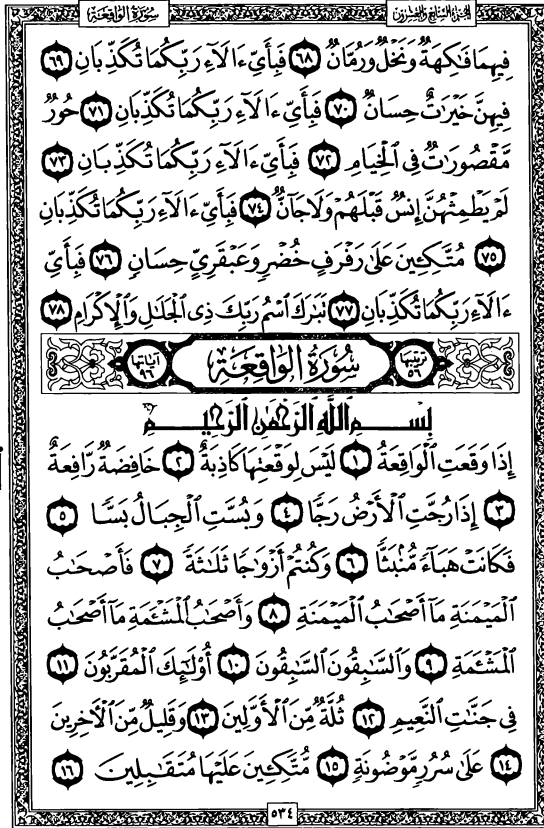 الجزء السابع والعشرون
سورة الواقعة
فِيهِمَا فَاكِهَةٌ وَنَخْلٌ وَرُمَّانٌ ٦٨ فَبِأَيِّ ءَالَآءِ رَبِّكُمَا تُكَذِّبَانِ ٦٩
فِيهِنَّ خَيْرَٰتٌ حِسَانٌ ٧٠ فَبِأَيِّ ءَالَآءِ رَبِّكُمَا تُكَذِّبَانِ ٧١ حُورٌ
مَّقْصُورَٰتٌ فِى ٱلْخِيَامِ ٧٢ فَبِأَيِّ ءَالَآءِ رَبِّكُمَا تُكَذِّبَانِ ٧٣
لَمْ يَطْمِثْهُنَّ إِنسٌ قَبْلَهُمْ وَلَا جَآنٌّ ٧٤ فَبِأَيِّ ءَالَآءِ رَبِّكُمَا تُكَذِّبَانِ
٧٥ مُتَّكِـِٔينَ عَلَىٰ رَفْرَفٍ خُضْرٍ وَعَبْقَرِىٍّ حِسَانٍ ٧٦ فَبِأَيِّ
ءَالَآءِ رَبِّكُمَا تُكَذِّبَانِ ٧٧ تَبَٰرَكَ ٱسْمُ رَبِّكَ ذِى ٱلْجَلَٰلِ وَٱلْإِكْرَامِ ٧٨
ترتيبها ٥٦ سُورَةُ الوَاقِعَة آياتها ٩٦
بِسْمِ ٱللَّهِ ٱلرَّحْمَٰنِ ٱلرَّحِيمِ
إِذَا وَقَعَتِ ٱلْوَاقِعَةُ ١ لَيْسَ لِوَقْعَتِهَا كَاذِبَةٌ ٢ خَافِضَةٌ رَّافِعَةٌ
٣ إِذَا رُجَّتِ ٱلْأَرْضُ رَجًّا ٤ وَبُسَّتِ ٱلْجِبَالُ بَسًّا ٥
فَكَانَتْ هَبَآءً مُّنۢبَثًّا ٦ وَكُنتُمْ أَزْوَٰجًا ثَلَٰثَةً ٧ فَأَصْحَٰبُ
ٱلْمَيْمَنَةِ مَآ أَصْحَٰبُ ٱلْمَيْمَنَةِ ٨ وَأَصْحَٰبُ ٱلْمَشْـَٔمَةِ مَآ أَصْحَٰبُ
ٱلْمَشْـَٔمَةِ ٩ وَٱلسَّٰبِقُونَ ٱلسَّٰبِقُونَ ١٠ أُو۟لَٰٓئِكَ ٱلْمُقَرَّبُونَ ١١
فِى جَنَّٰتِ ٱلنَّعِيمِ ١٢ ثُلَّةٌ مِّنَ ٱلْأَوَّلِينَ ١٣ وَقَلِيلٌ مِّنَ ٱلْءَاخِرِينَ
١٤ عَلَىٰ سُرُرٍ مَّوْضُونَةٍ ١٥ مُّتَّكِـِٔينَ عَلَيْهَا مُتَقَٰبِلِينَ ١٦
٥٣٤